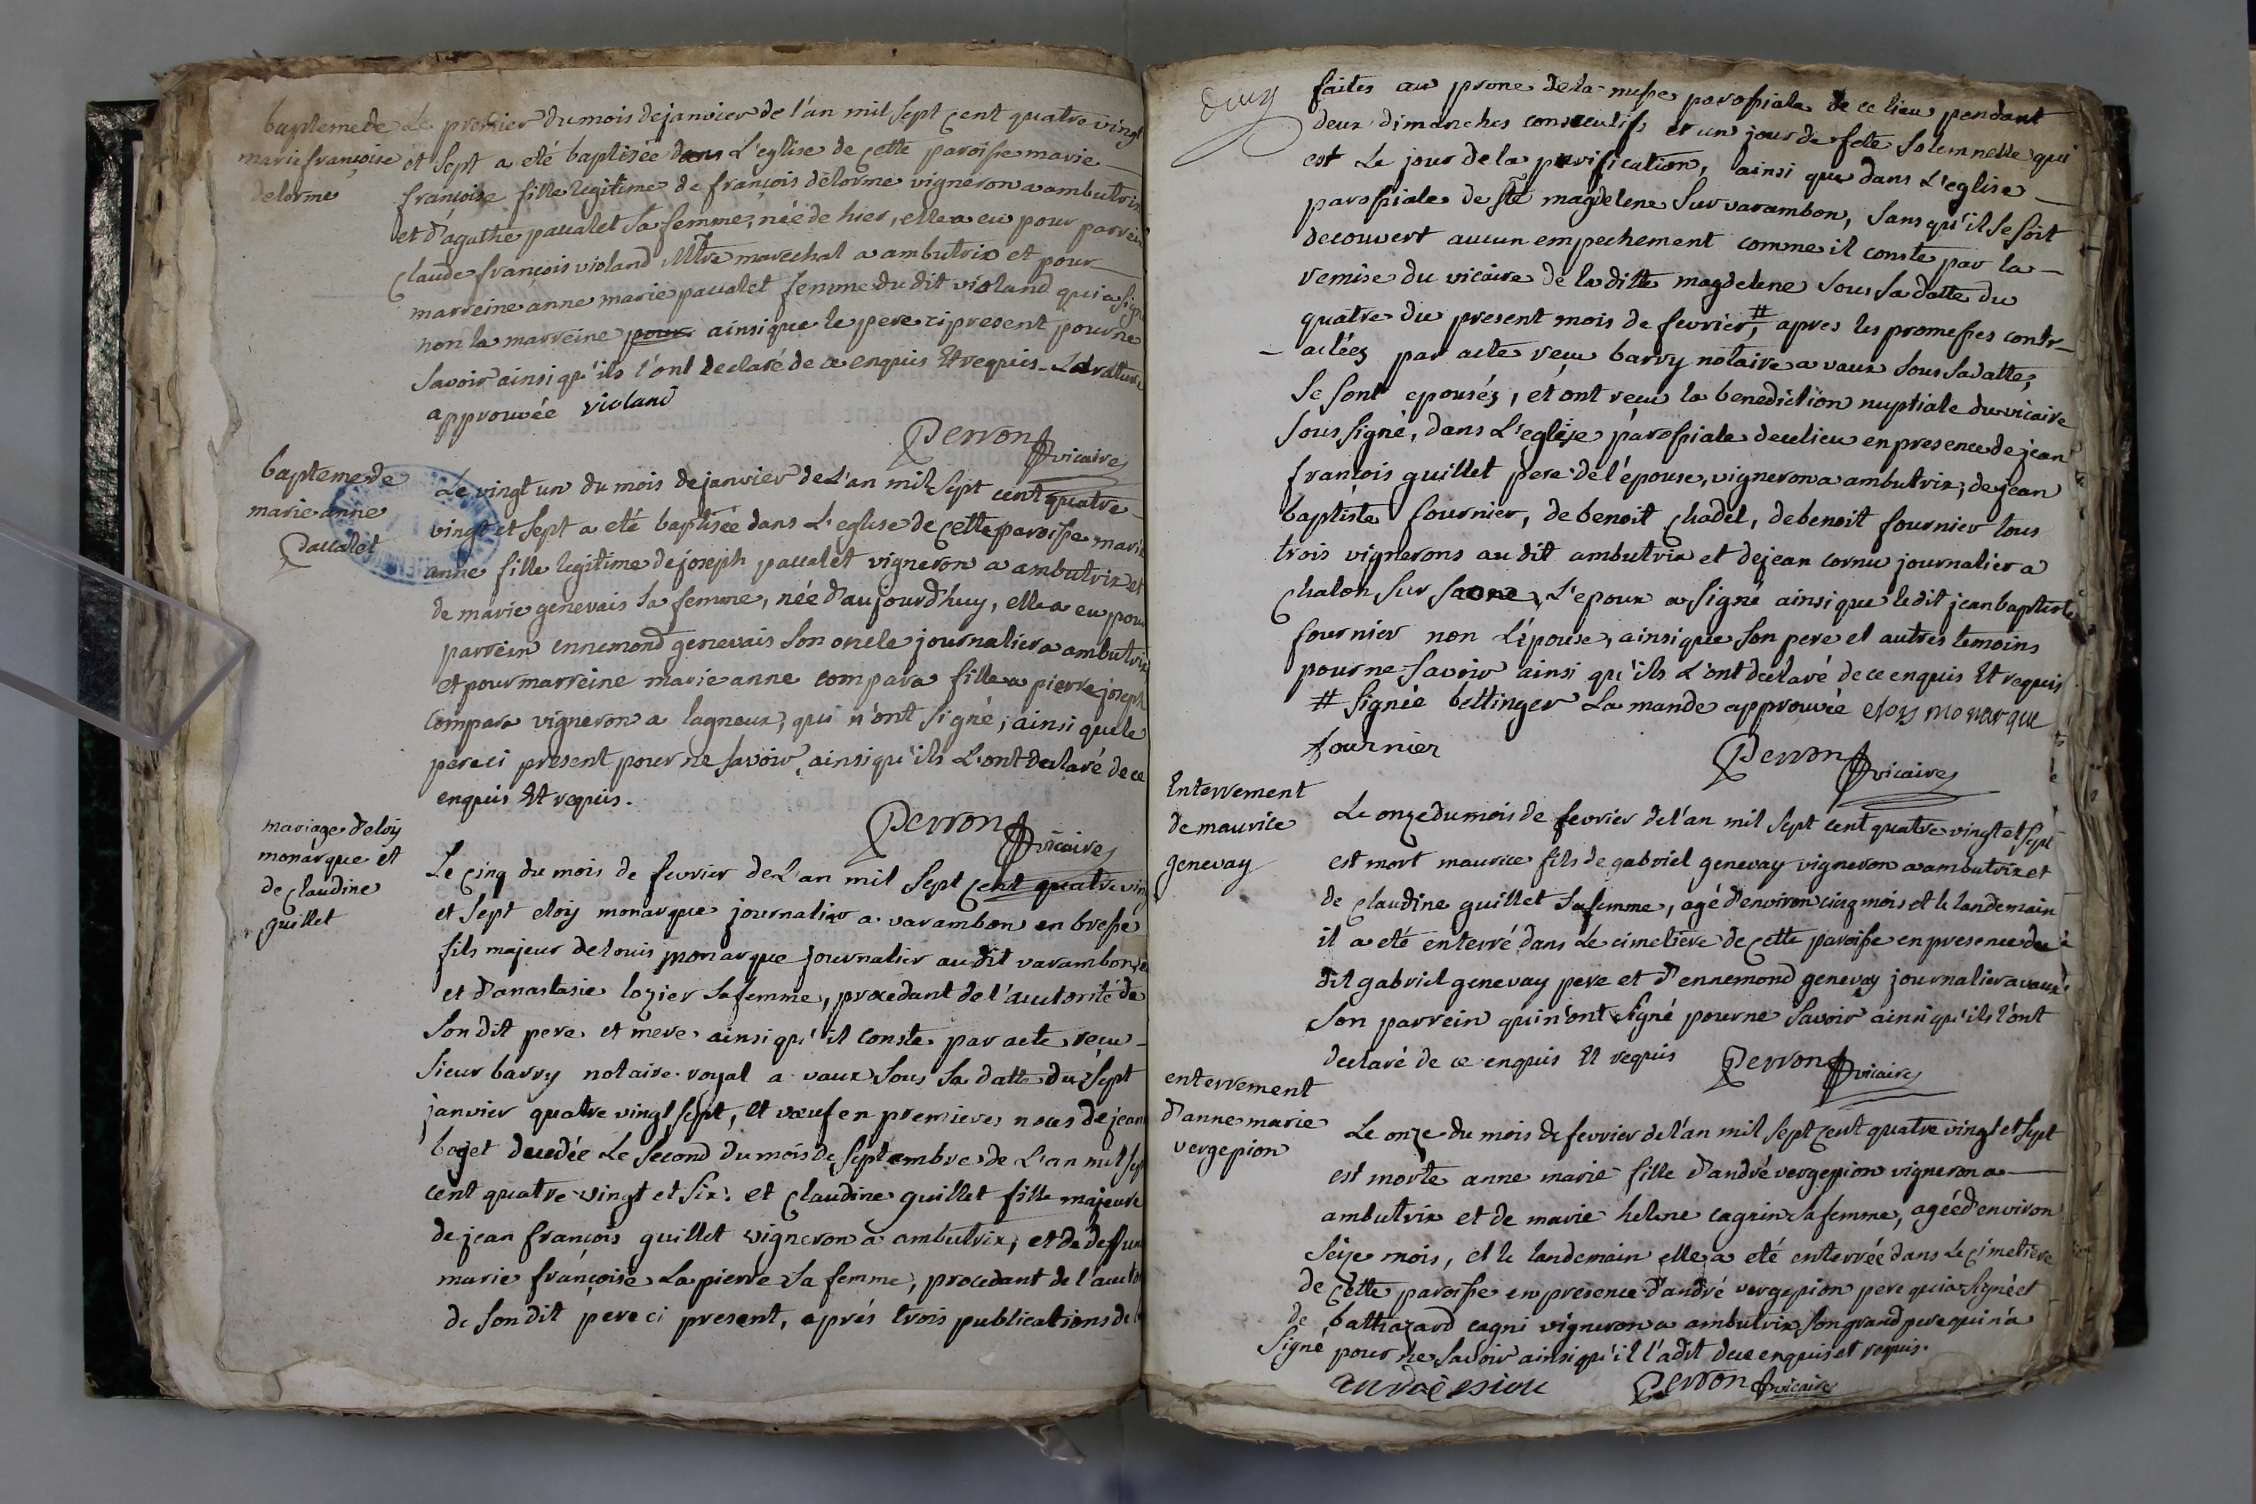 baptemede
marie françoise
delorme
Le premier du mois de janvier de l'an mil sept cent quatre vingt
et sept a eté baptizée dans L'eglise de cette paroisse marie
françoise fille legitime de françois delorme vigneron a ambutrix
et d'agathe paualet sa femme, née de hier, elle a eu pour parrein
Claude françois violand Mtre marechal a ambutrix et pour
marreine anne marie paualet femme du dit violand qui a signé
non la marreine pour ainsi que le pere ci present pour ne
savoir ainsi qu'ils l'ont declaré de ce enquis Et requis. La rature
approuvée violand
Perron vicaire
baptemede
marie anne
paualet
Le vingt un du mois de janvier de L'an mil sept cent quatre
vingt et sept a eté baptisée dans L'eglise de cette paroisse marie
anne fille legitime de joseph paualet vigneron a ambutrix et
de marie genevais sa femme, née d'aujourd'huy, elle a eu pour
parrein ennemond genevais son oncle journalier a ambutrix
et pour marreine marie anne compara fille a pierre joseph
compara vigneron a lagneux, qui n'ont signé, ainsi que le
pere ci present pour ne savoir, ainsi qu'ils L'ont declaré de ce
enquis Et requis.
Perron vicaire
mariage d'eloy
monarque et
de Claudine
guillet
Le cinq du mois de fevrier de L'an mil sept cent quatre vingt
et sept eloy monarque journalier a varambon en bresse
fils majeur de louis monarque journalier au dit varambon,
et d'anastasie lozier sa femme, procedant de l'autorité de
son dit pere et mere ainsi qu'il conste par acte recu
sieur barry notaire royal a vaux sous sa datte du sept
janvier quatre vingt sept, et vœuf en premieres noces de jeanne
boget decedée Le second du mois de septembre de L'an mil sept
cent quatre vingt et six. et Claudine guillet fille majeure
de jean françois guillet vigneron a ambutrix, et de deffunte
marie françoise Lapierre sa femme, procedant de l'autorité
de son dit pere ci present, aprés trois publications de
faites au prone de la messe parossiale de ce lieu pendant
deux dimanches consecutifs et un jour de fete solemnelle qui
est Le jour de la purification, ainsi que dans L'eglise
parossiale de ste magdelene sur varambon, sans qu'il se soit
decouvert aucun empechement comme il conste par la
remise du vicaire de la ditte magdelene sous sa datte du
quatre du present mois de fevrier,# apres les promesses contr-
actées par acte recu barry notaire a vaux sous sa datte,
se sont epousés, et ont reçu la benediction nuptiale du vicaire
sous signé, dans L'eglise parossiale de ce lieu en presence de jean
françois guillet pere de l'épouse, vigneron a ambutrix, de jean
baptiste fournier, de benoit Chadel, de benoit fournier tous
trois vignerons au dit ambutrix et de jean cornu journalier a
Chalon sur saone, L'epoux a signé ainsi que le dit jean baptiste
fournier non L'épouse, ainsi que son pere et autres temoins
pour ne savoir ainsi qu'ils L'ont declaré de ce enquis Et requis
# signée bettinger La mande approuvée eloy monarque
fournier
Perron vicaire
Enterrement
de maurice
genevay
Le onze du mois de fevrier de l'an mil sept cent quatre vingt et sept
est mort maurice fils de gabriel genevay vigneron a ambutrix et
de Claudine guillet sa femme, agé d'environ cinq mois et le landemain
il a eté enterré dans Le cimetiere de cette paroisse en presence du
dit gabriel genevay pere et d'ennemond genevay journalier a vaux
son parrein qui n'ont signé pour ne savoir ainsi qu'ils l'ont
declaré de ce enquis Et requis Perron vicaire
enterrement
d'anne marie
vergepion
Le onze du mois de fevrier de l'an mil sept cent quatre vingt et sept
est morte anne marie fille d'andré vergepion vigneron a
ambutrix et de marie helene cagnin sa femme, agée d'environ
seize mois, et le landemain elle a eté enterrée dans Le cimetiere
de cette paroisse en presence d'andré vergepion pere qui a signé et
de balthazard cagni vigneron a ambutrix son grand pere qui n'a
signé pour ne savoir ainsi qu'il l'a dit de ce enquis et requis.
Perron vicaire